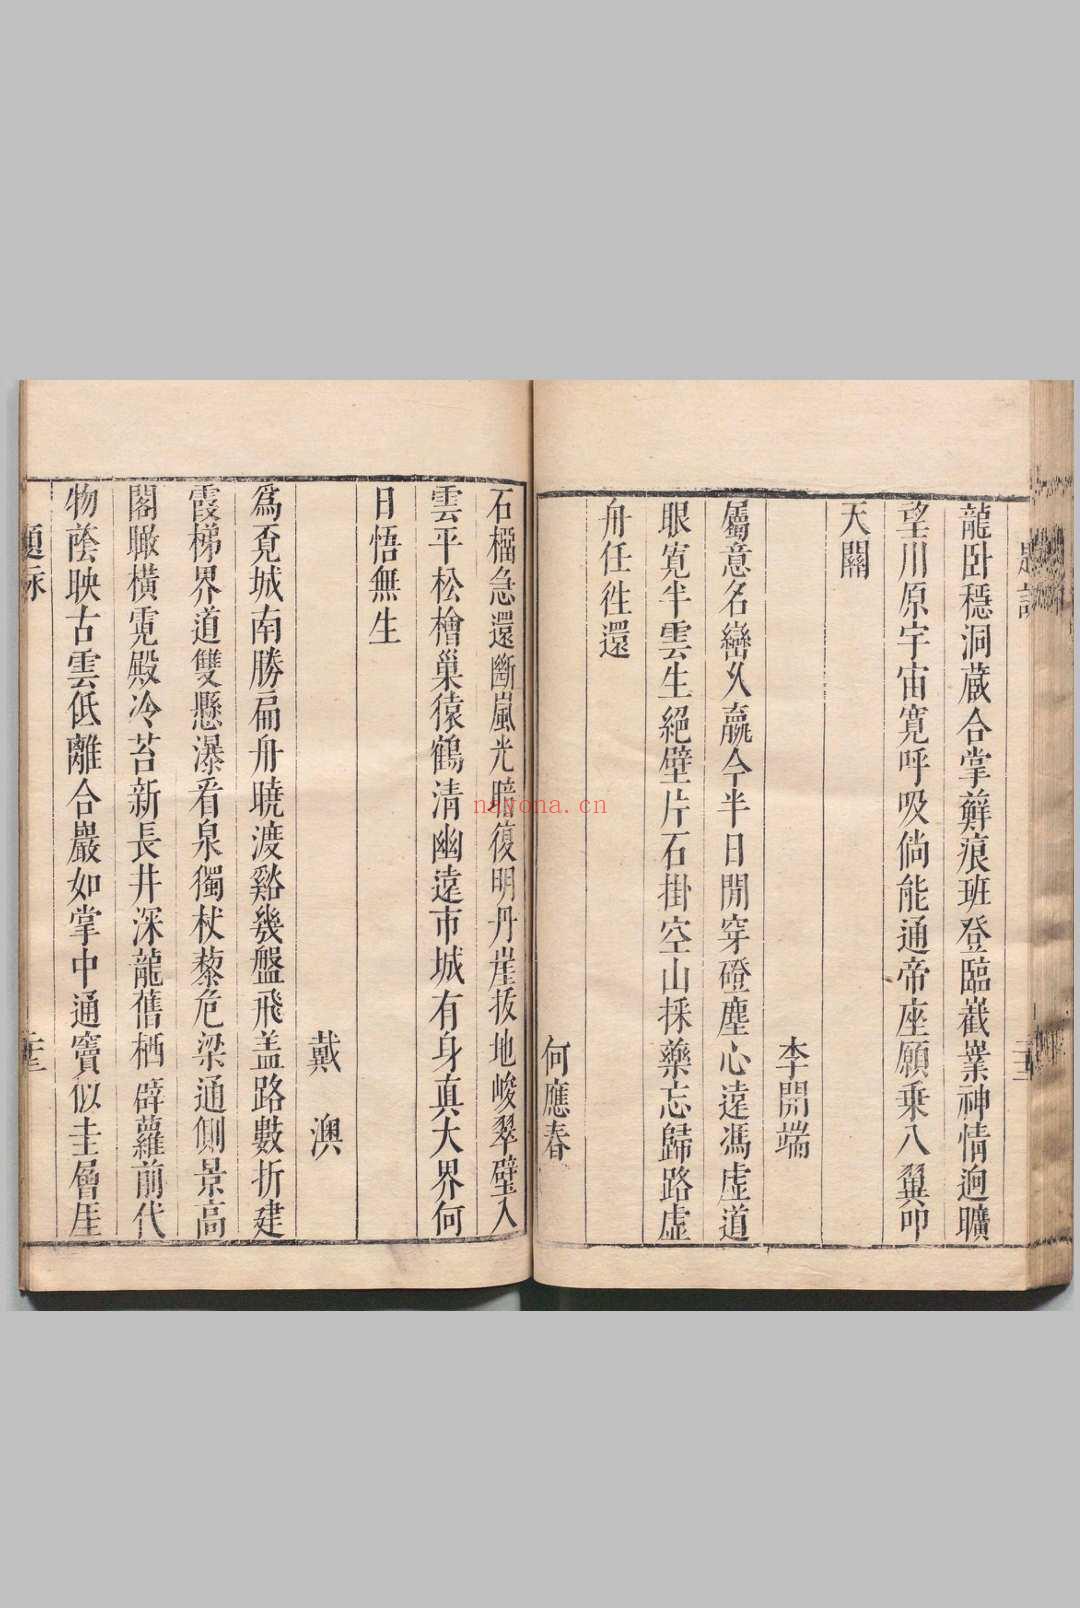 龍卧穩洞蔵合掌蘚痕班登臨嶻嶪神情逈曠
望川原宇宙寛呼吸倘能通帝座願乗八翼叩
天關
李開端
屬意名巒久羸今半日閒穿磴塵心遠馮虛道
眼寛半雲生絕壁片石掛空山採藥忘歸路虛
舟任徃還
何應春
石橊急還斷嵐光暗復明丹崖拔地峻翠壁入
雲平松檜巢猿鶴清幽遠市城有身真大界何
日悟無生
戴澳
爲覔城南勝扁舟曉渡谿幾盤飛盖路數折建
霞梯界道雙懸瀑看泉獨杖藜危梁通側景高
閣瞰橫霓殿冷苔新長井深龍舊栖薜蘿前代
物蔭映古雲低離合巖如掌中通竇似圭層厓
題詠
nayona.cn